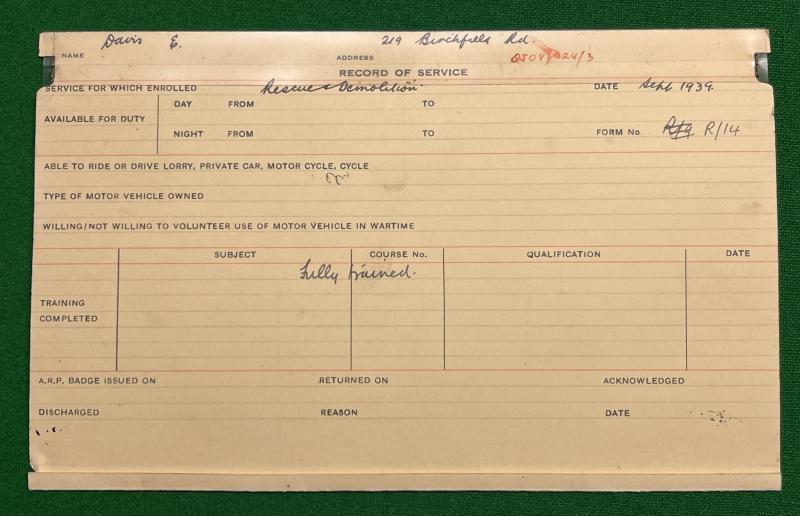 NAME Davis E. ADDRESS 219 Birchfield Rd.
RECORD OF SERVICE
SERVICE FOR WHICH ENROLLED Rescue & Demolition. DATE Sept 1939.
AVAILABLE FOR DUTY DAY FROM TO
NIGHT FROM TO FORM No R/14
ABLE TO RIDE OR DRIVE LORRY, PRIVATE CAR, MOTOR CYCLE, CYCLE
TYPE OF MOTOR VEHICLE OWNED
WILLING/NOT WILLING TO VOLUNTEER USE OF MOTOR VEHICLE IN WARTIME
SUBJECT COURSE No. QUALIFICATION DATE
Fully trained.
TRAINING
COMPLETED
A.R.P. BADGE ISSUED ON RETURNED ON ACKNOWLEDGED
DISCHARGED REASON DATE